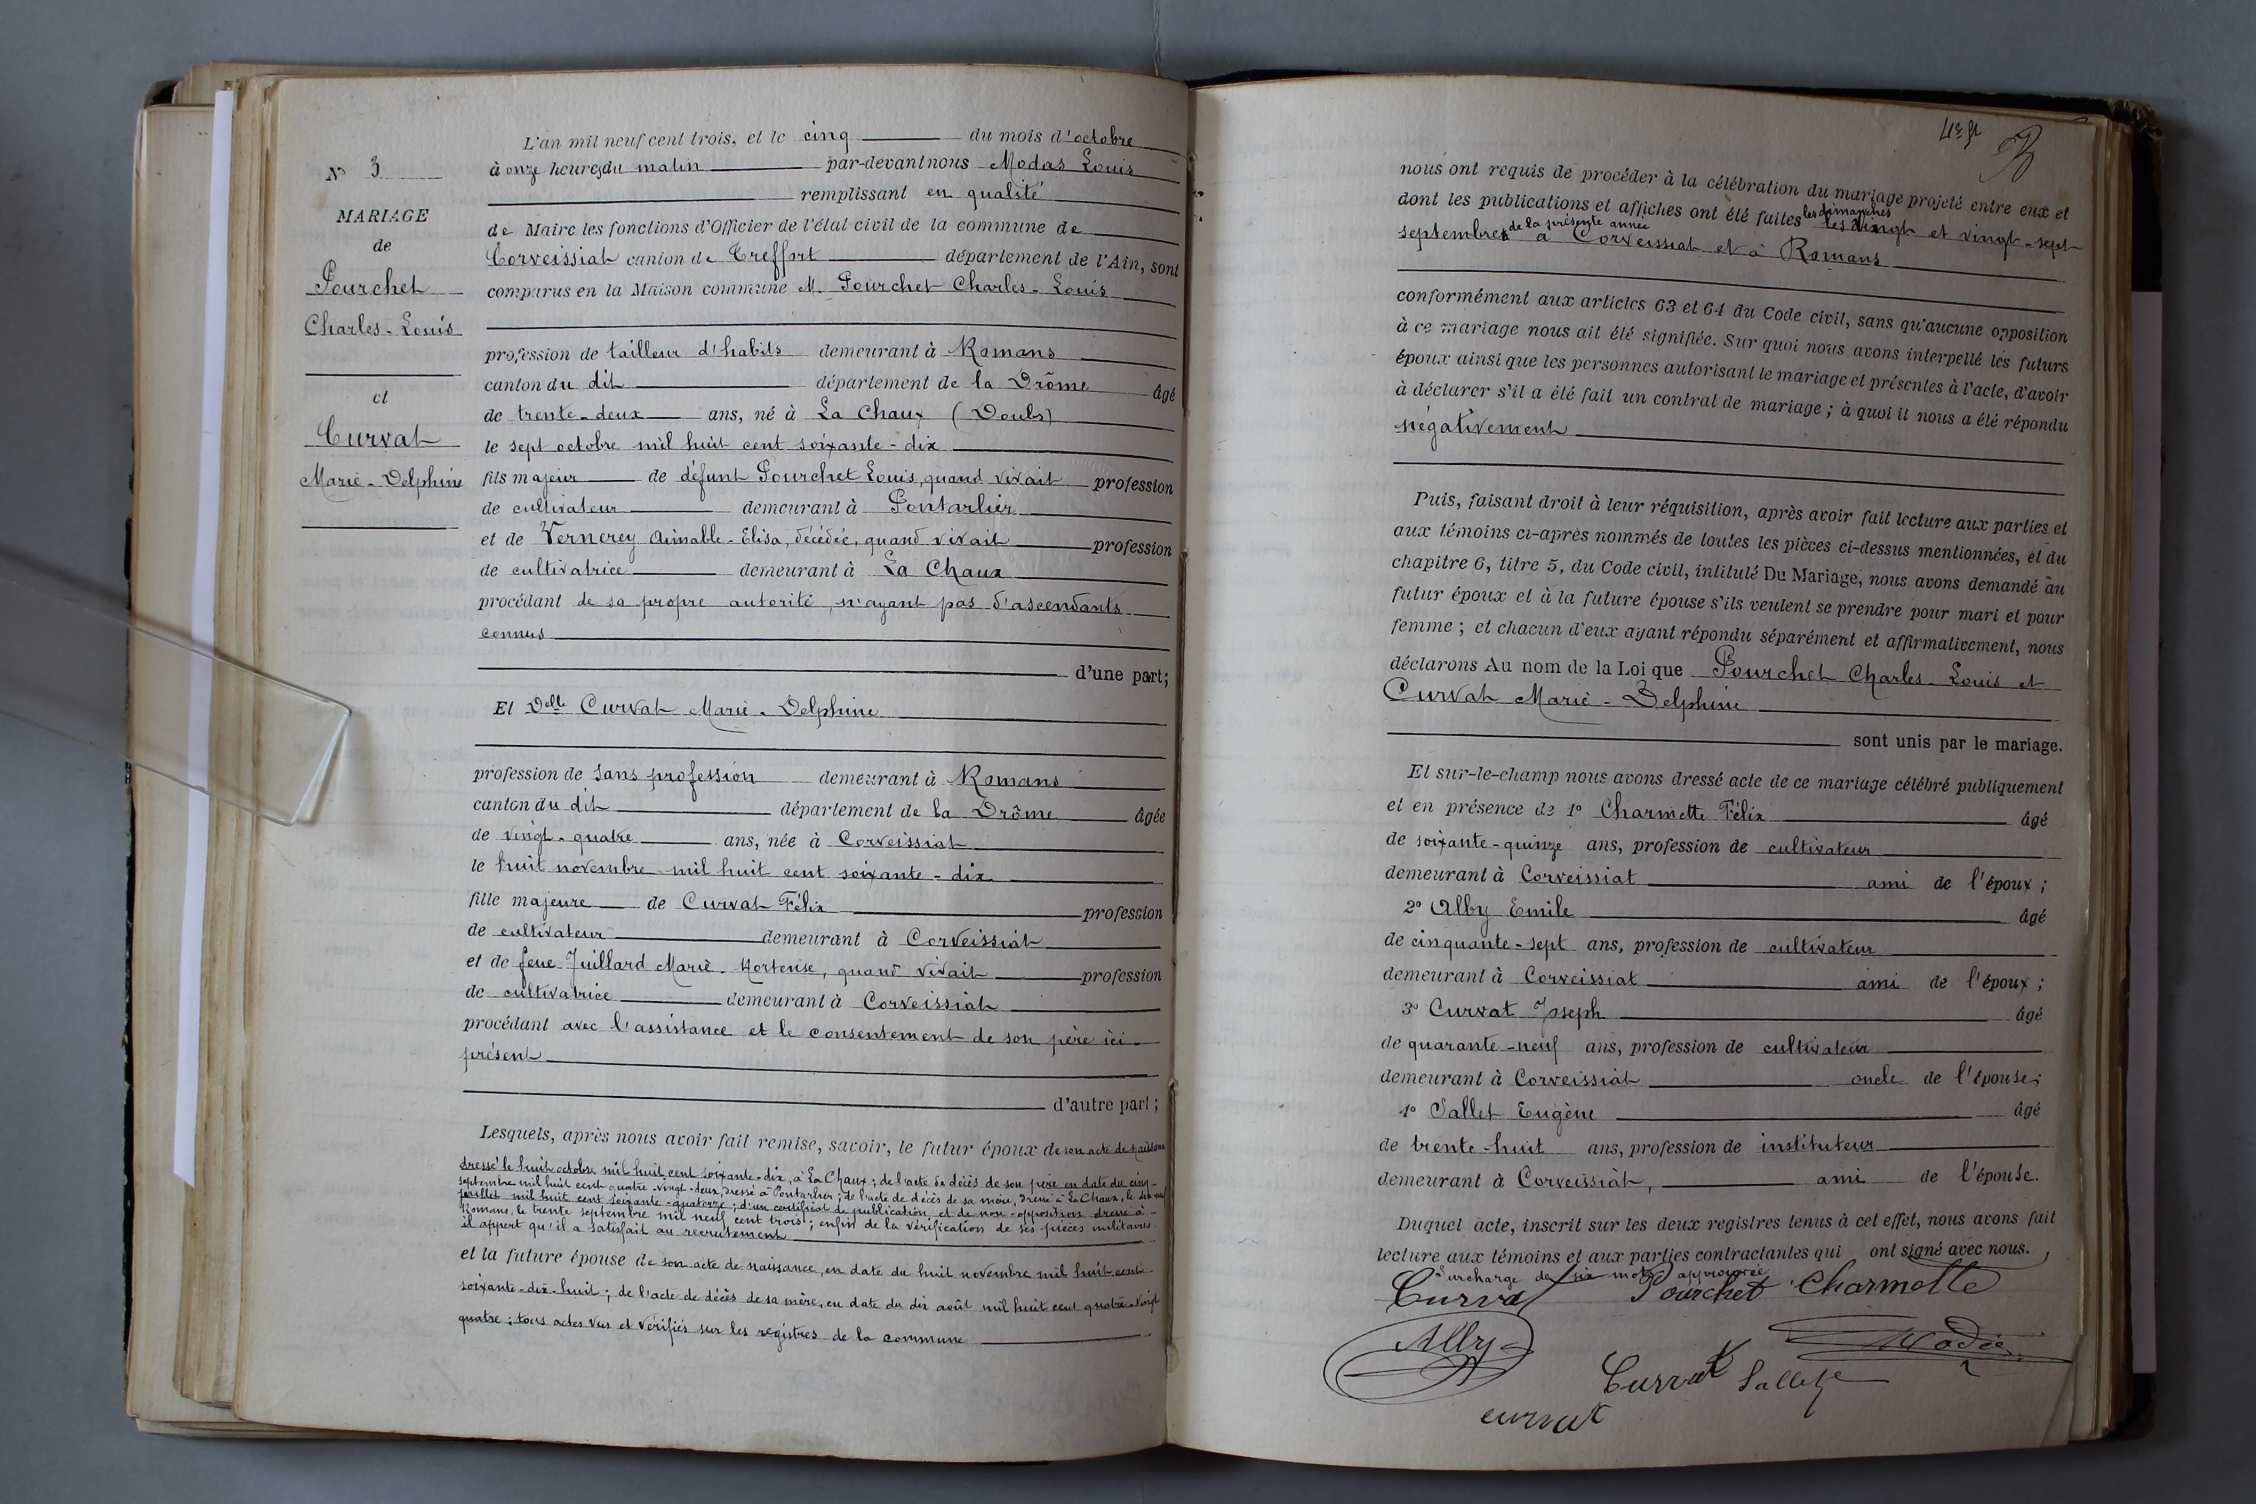 N° 3
MARIAGE
de
Pourchet
Charles-Louis
et
Curvat
Marie-Delphine
L'an mil neuf cent trois, et le cinq du mois d'octobre
à onze heures du matin par-devant nous Modas Louis
remplissant en qualité
de Maire les fonctions d'Officier de l'état civil de la commune de
Corveissiat canton de Treffort département de l'Ain, sont
comparus en la Maison commune M. Pourchet Charles-Louis
profession de tailleur d'habits demeurant à Romans
canton du dit département de la Drôme âgé
de trente-deux ans, né à La Chaux (Doubs)
le sept octobre mil huit cent soixante-dix
fils majeur de défunt Pourchet Louis, quand vivait profession
de cultivateur demeurant à Pontarlier
et de Vernerey Aimable-Elisa, décédée, quand vivait profession
de cultivatrice demeurant à La Chaux
procédant de sa propre autorité, n'ayant pas d'ascendants
connus
d'une part;
Et Delle Curvat Marie-Delphine
profession de sans profession demeurant à Romans
canton du dit département de la Drôme âgée
de vingt-quatre ans, née à Corveissiat
le huit novembre mil huit cent soixante-dix
fille majeure de Curvat Félix profession
de cultivateur demeurant à Corveissiat
et de feue Juillard Marie-Hortense, quand vivait profession
de cultivatrice demeurant à Corveissiat
procédant avec l'assistance et le consentement de son père ici
présent
d'autre part;
Lesquels, après nous avoir fait remise, savoir, le futur époux de son acte de naissance
dressé le huit octobre mil huit cent soixante-dix, à La Chaux; de l'acte de décès de son père en date du cinq
septembre mil huit cent quatre-vingt-deux, dressé à Pontarlier; de l'acte de décès de sa mère, dressé à La Chaux, le
juillet mil huit cent soixante-quatorze; d'un certificat de publication et de non-opposition dressé à
Romans, le trente septembre mil neuf cent trois; enfin de la vérification de ses pièces militaires
il appert qu'il a satisfait au recrutement
et la future épouse de son acte de naissance, en date du huit novembre mil huit cent
soixante-dix-huit; de l'acte de décès de sa mère, en date du dix août mil huit cent quatre-vingt
quatre; tous actes vus et vérifiés sur les registres de la commune
nous ont requis de procéder à la célébration du mariage projeté entre eux et
dont les publications et affiches ont été faites les dimanches les vingt et vingt-sept
septembre de la présente année à Corveissiat et à Romans
conformément aux articles 63 et 64 du Code civil, sans qu'aucune opposition
à ce mariage nous ait été signifiée. Sur quoi nous avons interpellé les futurs
époux ainsi que les personnes autorisant le mariage et présentes à l'acte, d'avoir
à déclarer s'il a été fait un contrat de mariage; à quoi il nous a été répondu
négativement
Puis, faisant droit à leur réquisition, après avoir fait lecture aux parties et
aux témoins ci-après nommés de toutes les pièces ci-dessus mentionnées, et du
chapitre 6, titre 5, du Code civil, intitulé Du Mariage, nous avons demandé au
futur époux et à la future épouse s'ils veulent se prendre pour mari et pour
femme; et chacun d'eux ayant répondu séparément et affirmativement, nous
déclarons Au nom de la Loi que Pourchet Charles-Louis et
Curvat Marie-Delphine
sont unis par le mariage.
Et sur-le-champ nous avons dressé acte de ce mariage célébré publiquement
et en présence de 1° Charmette Félix âgé
de soixante-quinze ans, profession de cultivateur
demeurant à Corveissiat ami de l'époux;
2° Alby Emile âgé
de cinquante-sept ans, profession de cultivateur
demeurant à Corveissiat ami de l'époux;
3° Curvat Joseph âgé
de quarante-neuf ans, profession de cultivateur
demeurant à Corveissiat oncle de l'épouse;
4° Sallet Eugène âgé
de trente-huit ans, profession de instituteur
demeurant à Corveissiat, ami de l'épouse.
Duquel acte, inscrit sur les deux registres tenus à cet effet, nous avons fait
lecture aux témoins et aux parties contractantes qui ont signé avec nous.
Surcharge de six mots approuvée
Curvat Pourchet Charmette
Alby
Curvat Sallet
curvat